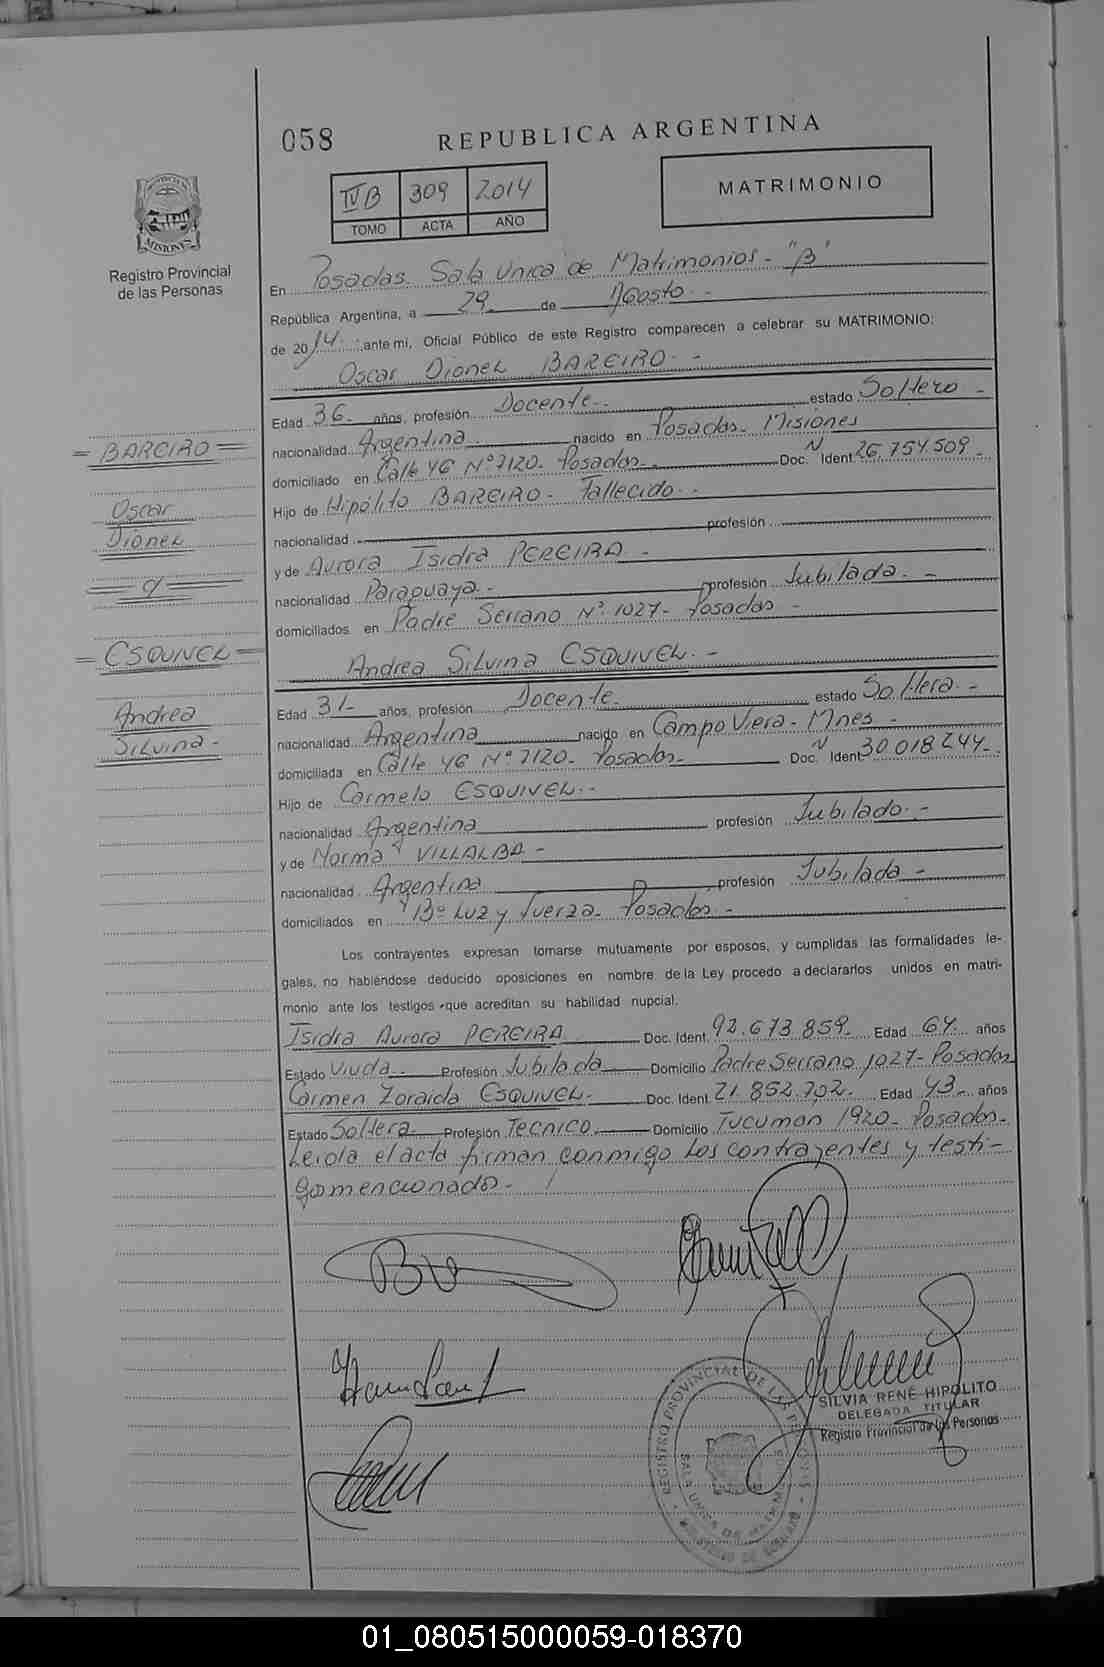 058 REPUBLICA ARGENTINA
IVB 309 2014
TOMO ACTA AÑO
MATRIMONIO
PROVINCIA DE MISIONES
Registro Provincial
de las Personas
En Posadas. Sala Unica de Matrimonios - "B"
República Argentina, a 29 de Agosto. -
de 2014. ante mi, Oficial Público de este Registro comparecen a celebrar su MATRIMONIO:
Oscar Dionel BAREIRO. -
Edad 36 - años, profesión Docente. estado Soltero -
nacionalidad Argentina nacido en Posadas. Misiones
domiciliado en Calle 46 Nº 7120. Posadas. Doc. N Ident 26.754.509 -
Hijo de Hipólito BAREIRO - Fallecido. -
nacionalidad - profesión
y de Aurora Isidra PEREIRA -
nacionalidad Paraguaya. - profesión Jubilada. -
domiciliados en Padre Serrano Nº 1027 - Posadas -
= BAREIRO =
Oscar
Dionel
= c/ =
= ESQUIVEL =
Andrea
Silvina -
Andrea Silvina ESQUIVEL. -
Edad 31- años, profesión Docente. estado Soltera. -
nacionalidad Argentina nacido en Campo Viera - Mnes -
domiciliada en Calle 46 Nº 7120. Posadas. Doc. N Ident 30.018.244.-
Hijo de Carmelo ESQUIVEL. -
nacionalidad Argentina profesión Jubilado. -
y de Norma VILLALBA -
nacionalidad Argentina profesión Jubilada -
domiciliados en Bº Luz y Fuerza. Posadas. -
Los contrayentes expresan tomarse mutuamente por esposos, y cumplidas las formalidades le-
gales, no habiéndose deducido oposiciones en nombre de la Ley procedo a declararlos unidos en matri-
monio ante los testigos que acreditan su habilidad nupcial.
Isidra Aurora PEREIRA Doc. Ident. 92.673.859. Edad 64 años
Estado Viuda. Profesión Jubilada Domicilio Padre Serrano 1027 - Posadas
Carmen Zoraida ESQUIVEL. Doc. Ident. 21.852.702. Edad 43 años
Estado Soltera. Profesión TECNICO. Domicilio Tucuman 1920. Posadas.
Leida el acta firman conmigo los contrayentes y testi-
gos mencionados. -
SILVIA RENÉ HIPOLITO
DELEGADA TITULAR
Registro Provincial de las Personas
REGISTRO PROVINCIAL DE LAS PERSONAS
SALA UNICA DE MATRIMONIOS
01_080515000059-018370